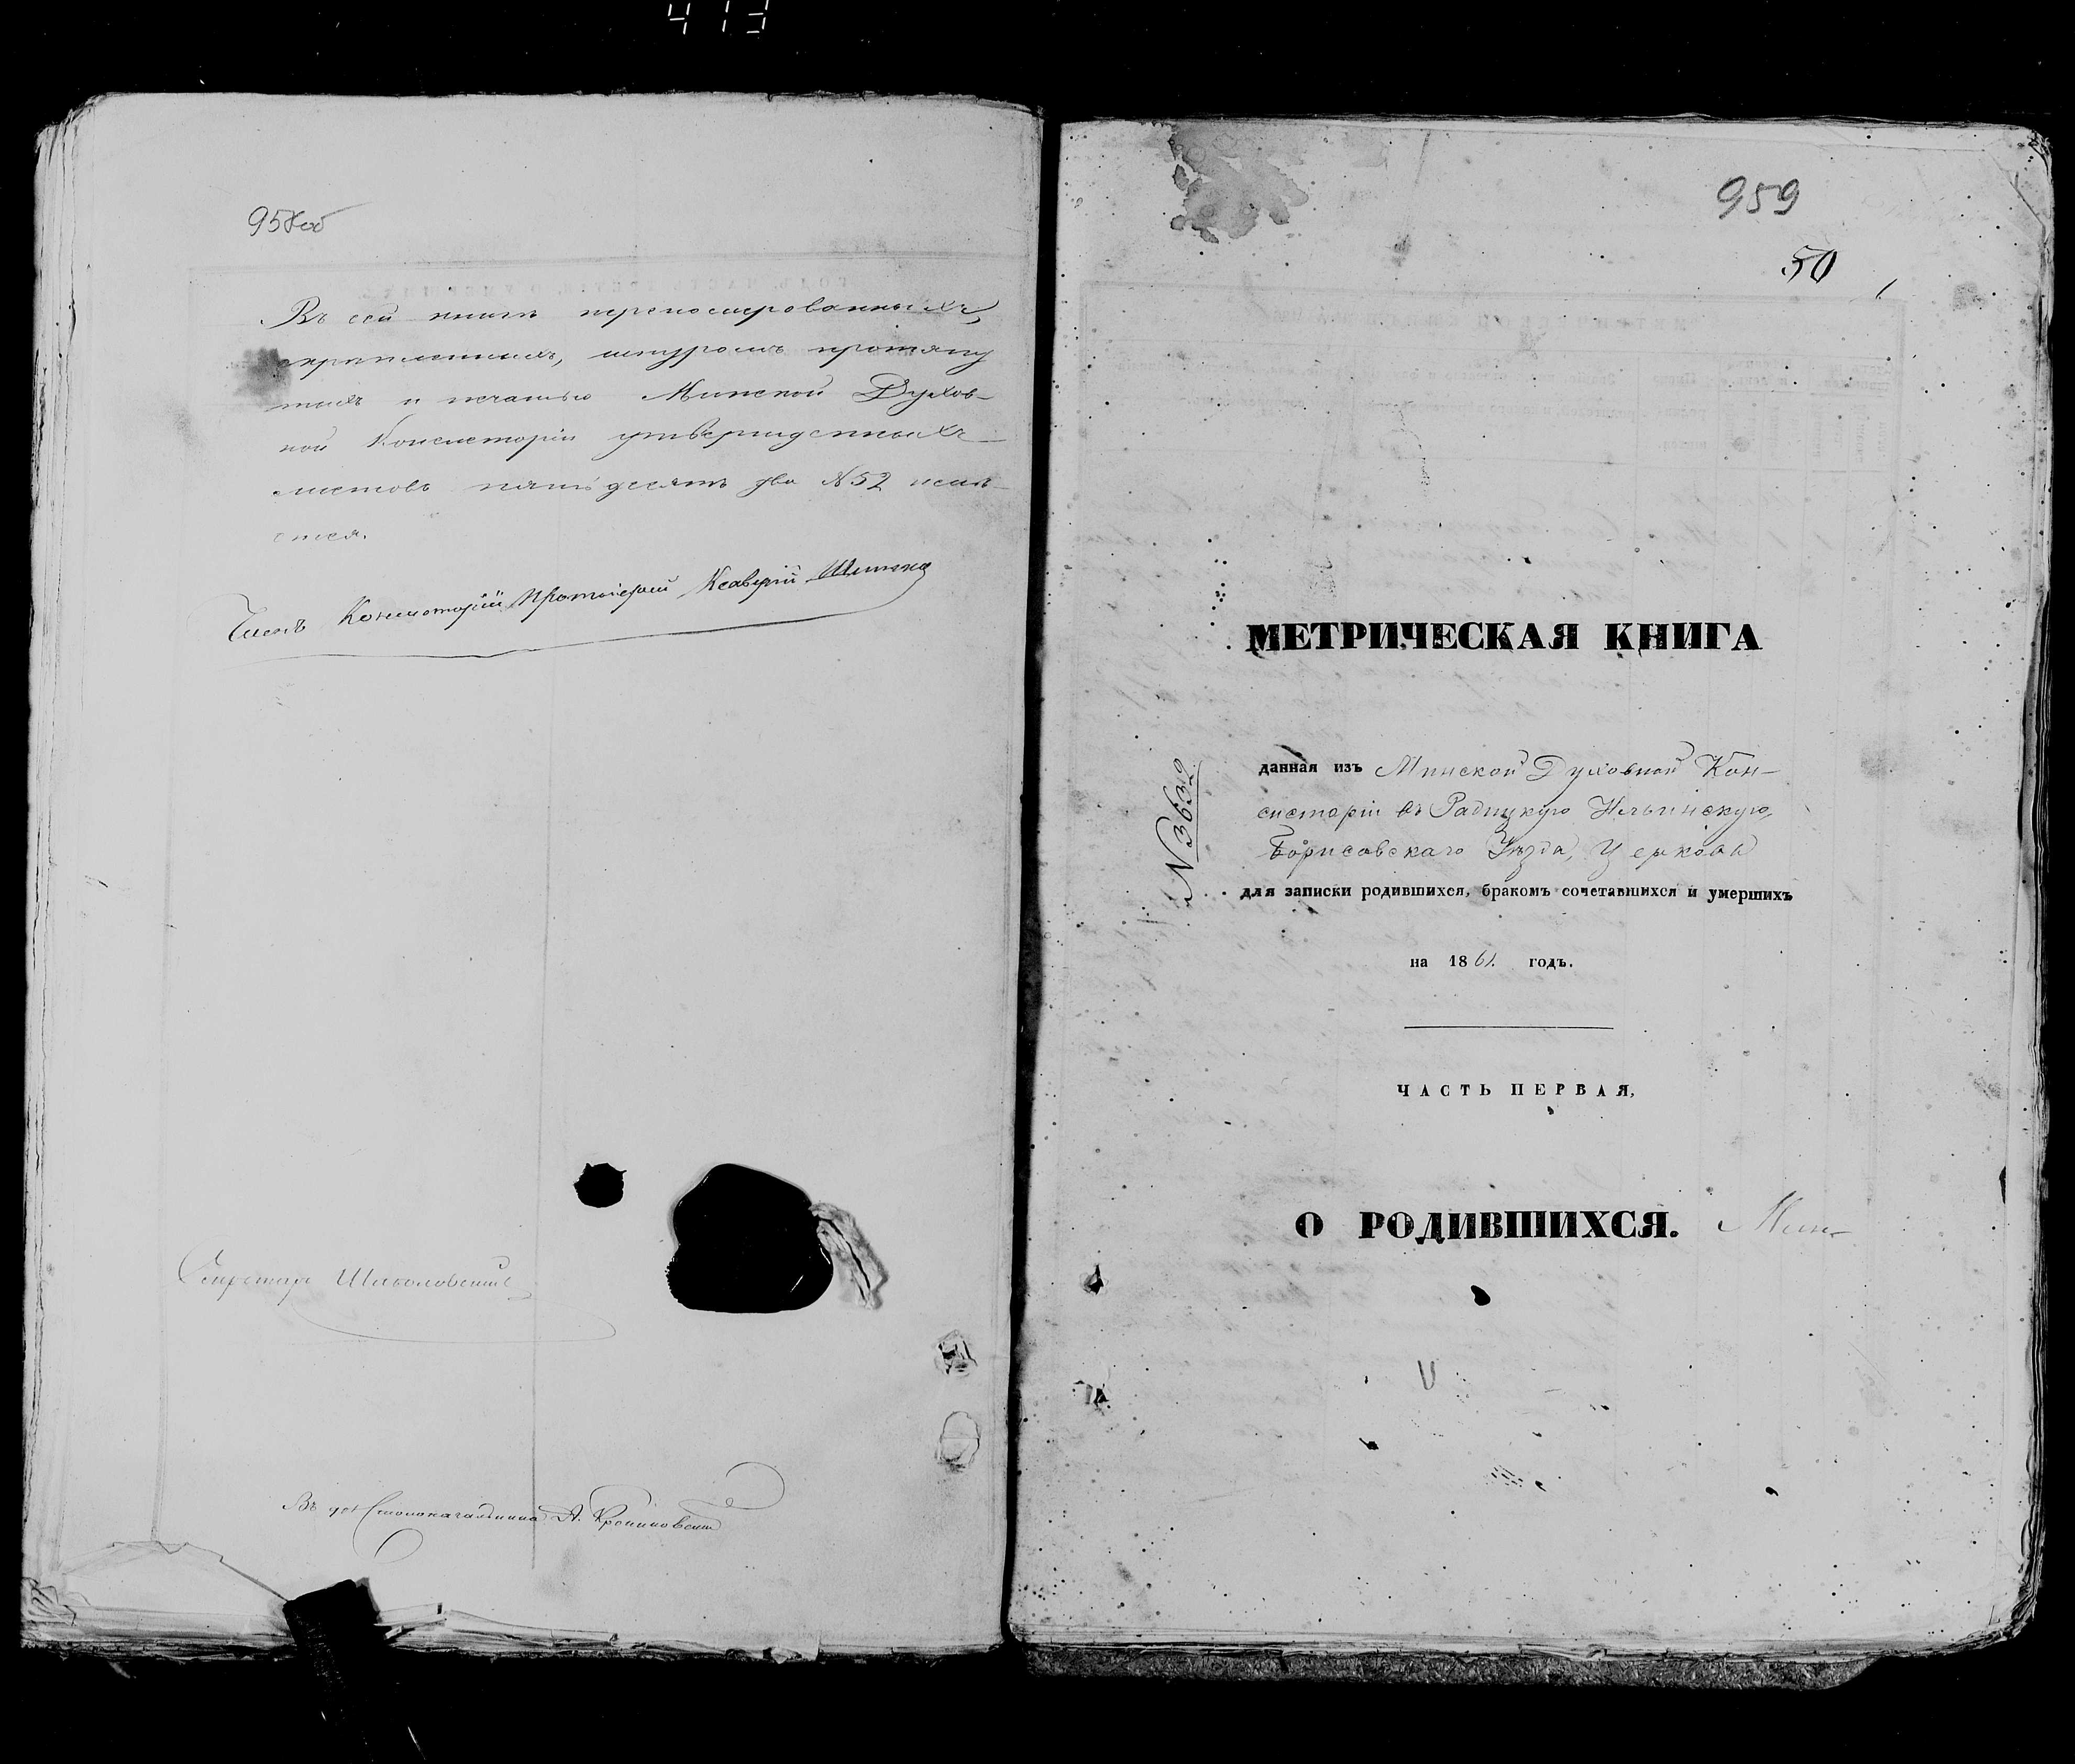 958об
Въ сей книгѣ перенумерованныхъ,
скрѣпленныхъ, шнуромъ протяну
тыхъ и печатью Минской Духов-
ной Консисторіи утвержденныхъ
листовъ пятьдесятъ два №52 числ-
ится.
Членъ Консисторіи Протоіерей Ксаверій
Секретарь
Въ дол. Столоначальника А.
959
50
1
МЕТРИЧЕСКАЯ КНИГА
№ 3632
данная изъ Минской Духовной Кон-
систоріи въ Радицкую Ильинскую,
Борисовскаго Уѣзда, Церковь
для записки родившихся, бракомъ сочетавшихся и умершихъ
на 1861. годъ.
ЧАСТЬ ПЕРВАЯ,
О РОДИВШИХСЯ.
Мин-